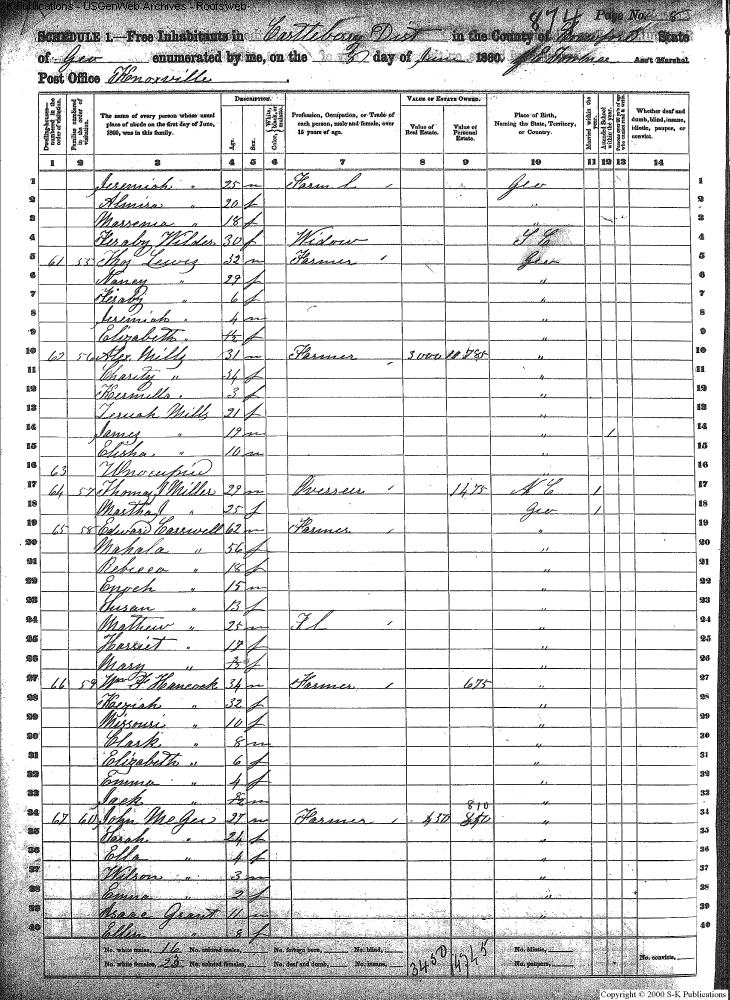 S-K Publications - USGenWeb Archives - Rootsweb
874 Page No. 8
SCHEDULE 1.—Free Inhabitants in Castleberry Dist in the County of Crawford State
of Geo enumerated by me, on the day of June 1860. Ass't Marshal
Post Office Knoxville
Dwelling-houses—numbered in the order of visitation.
Families numbered in the order of visitation.
The name of every person whose usual place of abode on the first day of June, 1860, was in this family.
DESCRIPTION.
Age.
Sex.
Color, White, black, or mulatto.
Profession, Occupation, or Trade of each person, male and female, over 15 years of age.
VALUE OF ESTATE OWNED.
Value of Real Estate.
Value of Personal Estate.
Place of Birth, Naming the State, Territory, or Country.
Married within the year.
Attended School within the year.
Persons over 20 y'rs of age who cannot read & write.
Whether deaf and dumb, blind, insane, idiotic, pauper, or convict.
1 2 3 4 5 6 7 8 9 10 11 12 13 14
1 Jeremiah " 25 m Farm L Geo 1
2 Almira " 20 f " 2
3 Marrenia " 18 f " 3
4 Keraby Wilder 30 f Widow S C 4
5 61 55 Thos Lewis 32 m Farmer Geo 5
6 Nancy " 29 f " 6
7 Keraby " 6 f " 7
8 Jeremiah " 4 m " 8
9 Elizabeth " f " 9
10 62 56 Alex Mills 31 m Farmer 3000 " 10
11 Charity " 34 f " 11
12 3 f " 12
13 Mills 21 f " 13
14 James " 19 m " 1 14
15 Elisha " 10 m " 15
16 63 Unoccupied " 16
17 64 57 Thomas J Miller 29 m Overseer 1475 N C 1 17
18 Martha J " 25 f Geo 1 18
19 65 58 Edward Carswell 62 m Farmer " 19
20 Mahala " 56 f " 20
21 Rebecca " 18 f " 21
22 Enoch " 15 m " 22
23 Susan " 13 f " 23
24 Mathew " 25 m F L " 24
25 Harriet " f " 25
26 Mary " f " 26
27 66 59 Wm F Hancock 34 m Farmer 675 " 27
28 Keziah " 32 f " 28
29 Missouri " 10 f " 29
30 Clark " 8 m " 30
31 Elizabeth " 6 f " 31
32 Emma " 4 f " 32
33 Jack " m " 33
34 67 60 John McGee 27 m Farmer 450 810 " 34
35 Sarah " 24 f " 35
36 Ella " 4 f " 36
37 Wilson " 3 m " 37
38 Emma " 2 f " 38
39 Isaac Grant 11 m " 39
40 Ellen " 8 f " 40
No. white males, 16 No. colored males, No. foreign born, No. blind, 3450 No. idiotic, No. convicts,
No. white females, 23 No. colored females, No. deaf and dumb, No. insane, No. paupers,
Copyright © 2000 S-K Publications